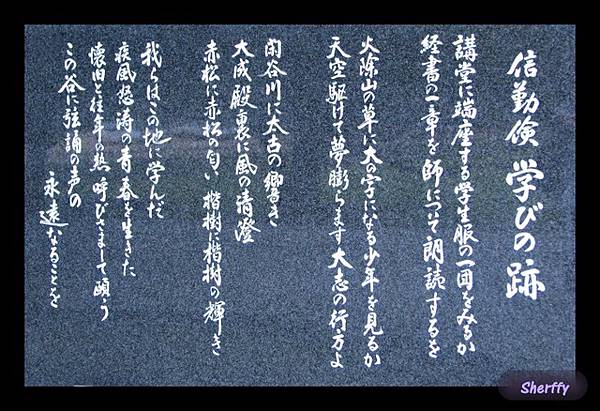 信勤倹 学びの跡
講堂に端座する学生服の一団をみるか
経書の一章を師について朗読するを
火除山の草に大の字になる少年を見るか
天空駆けて夢膨らます大志の行方よ
閑谷川に太古の響き
大成殿裏に風の清澄
赤松に赤松の匂い 楷樹に楷樹の輝き
我らはこの地に学んだ
疾風怒涛の青春を生きた
懐旧と往年の熱 呼びさまして願う
この谷に弦誦の声の
永遠なることを
Sherffy